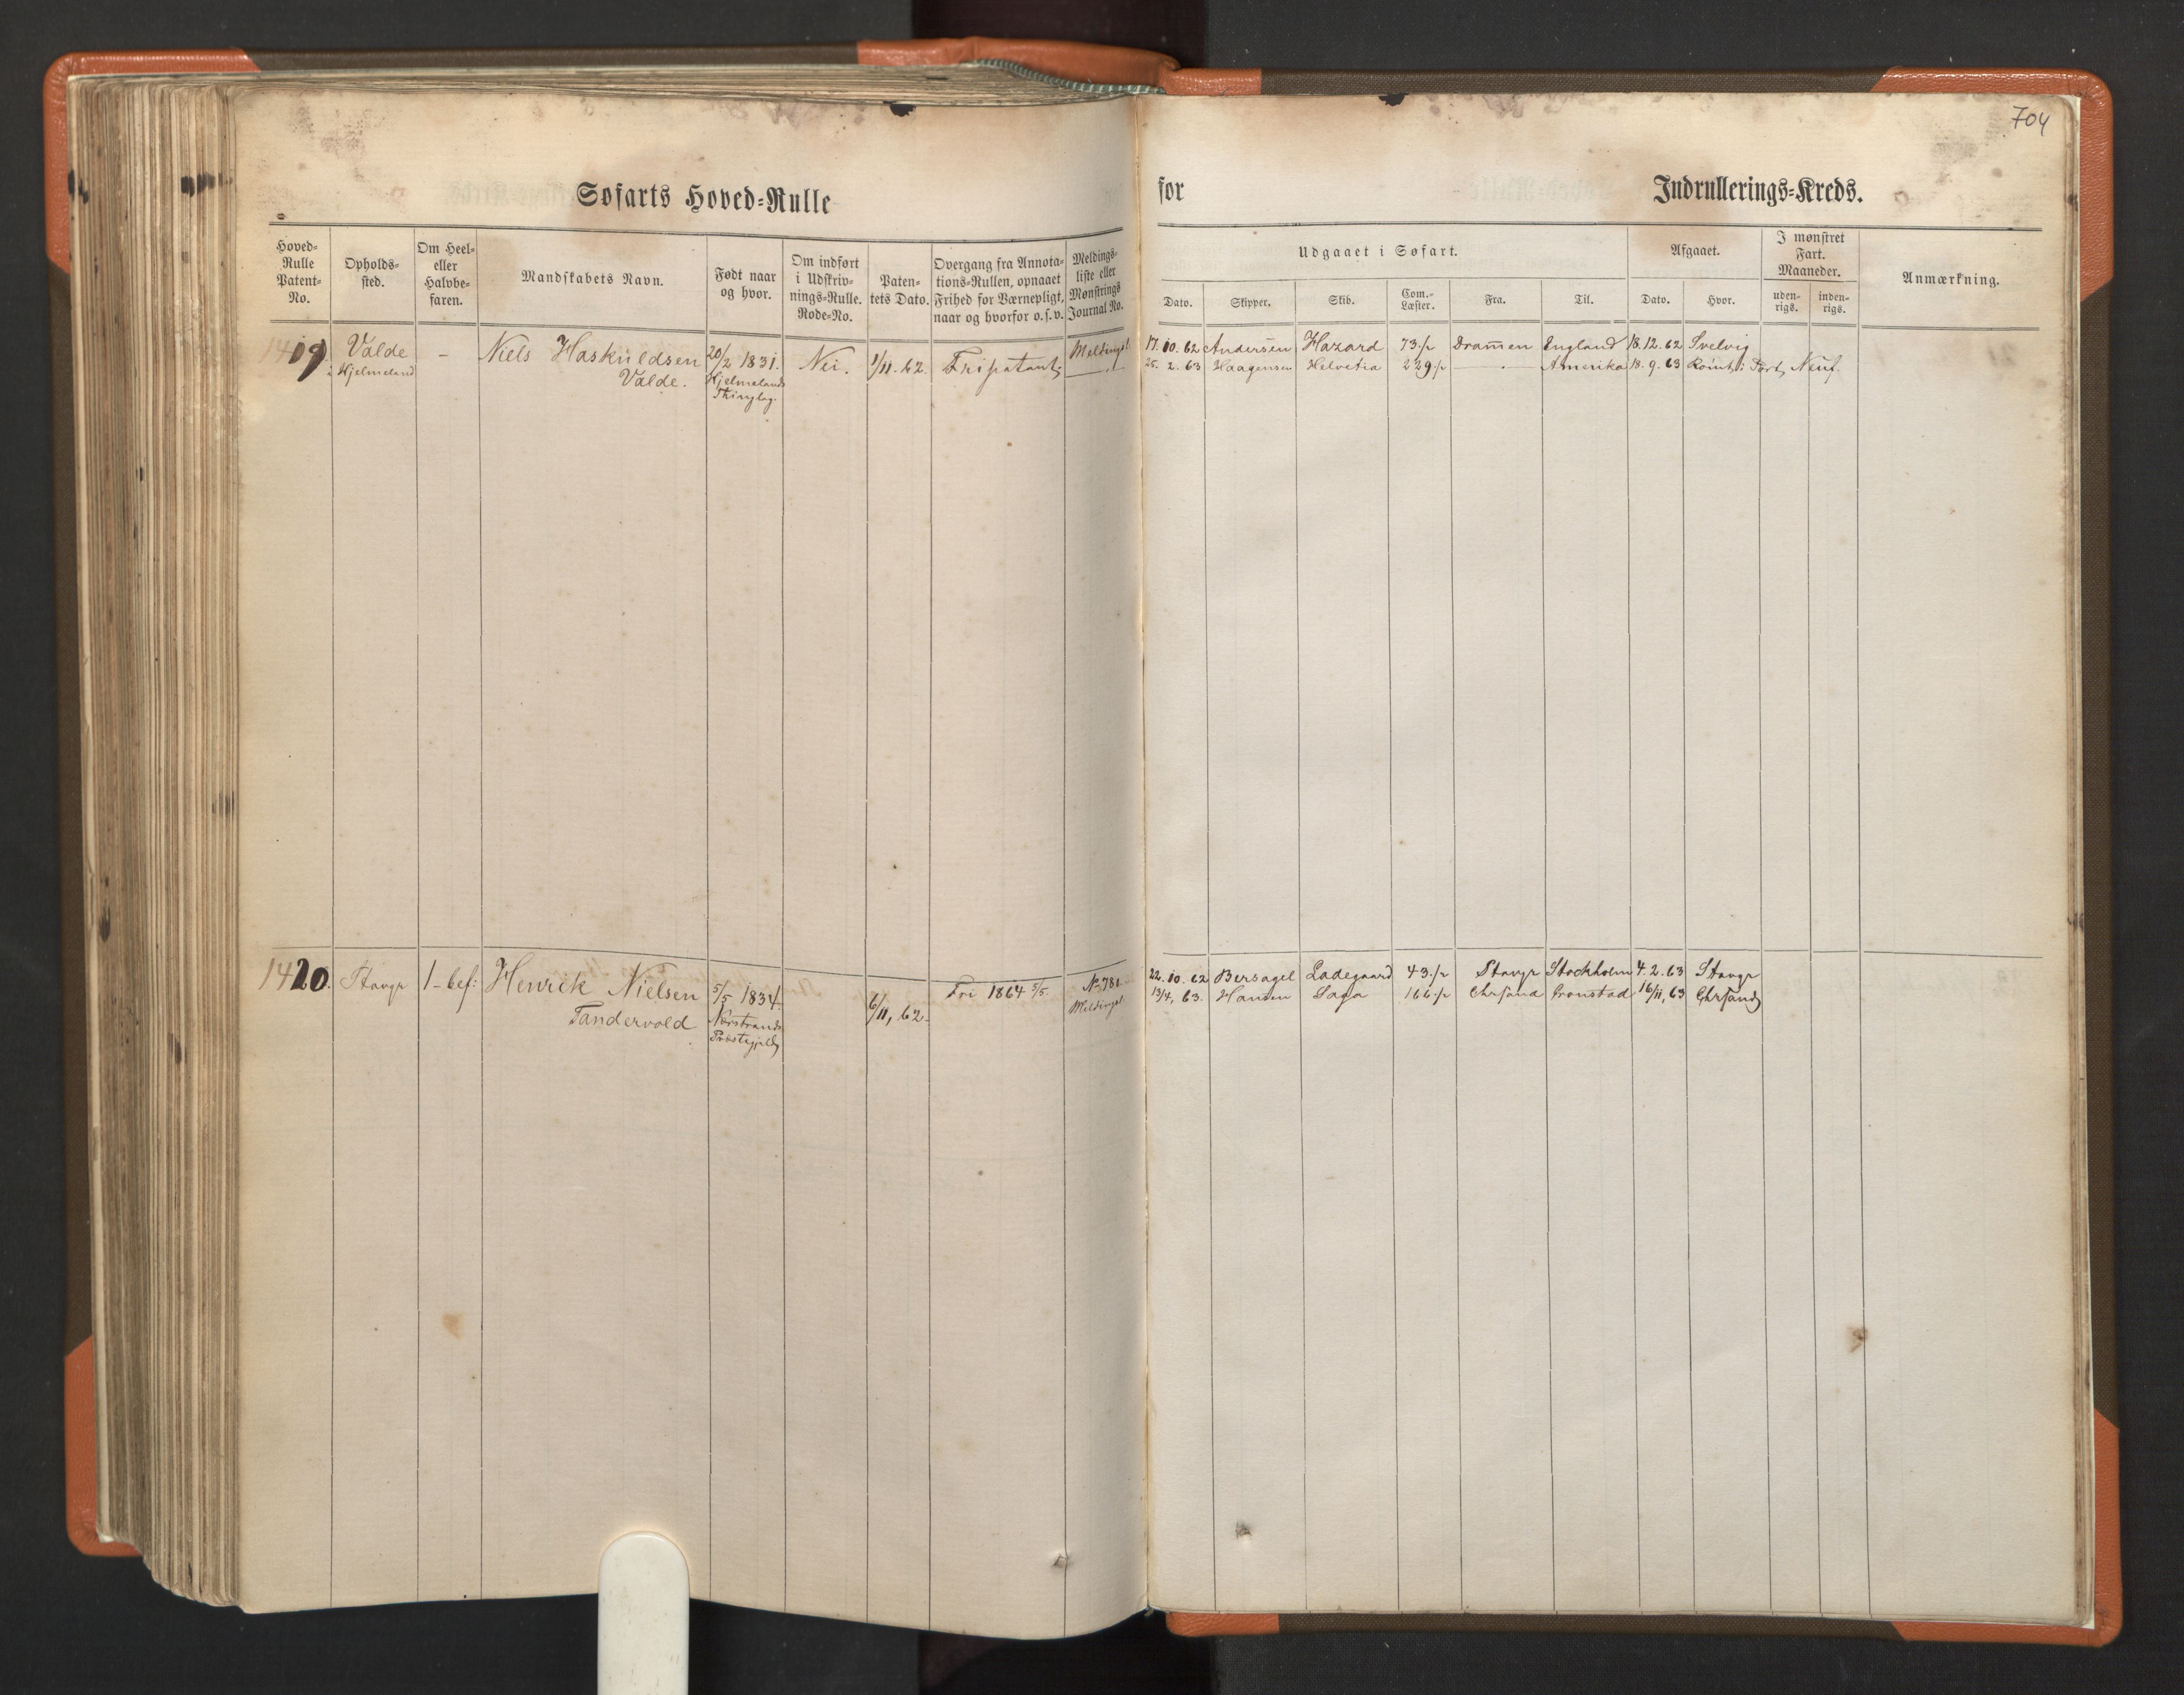 704
Søfarts Hoved-Rulle
for Indrullerings-Kreds.
Hoved-Rulle Patent-No.
Opholds-sted.
Om Heel- eller Halvbe-faren.
Mandskabets Navn.
Født naar og hvor.
Om indført i Udskriv-nings-Rulle. Rode-No.
Paten-tets Dato.
Overgang fra Annota-tions-Rullen, opnaaet Frihed for Værnepligt, naar og hvorfor o.s.v.
Meldings-liste eller Mønstrings Journal No.
Udgaaet i Søfart.
Dato. Skipper. Skib. Com.-Læster. Fra. Til.
Afgaaet.
Dato. Hvor.
I mønstret Fart. Maaneder.
uden-rigs. inden-rigs.
Anmærkning.
1419 Valde – Niels Haskuldsen 20/2 1831. Nei. 1/11. 62. Fripatent. Meldingsl.
i Hjelmeland Valde. Hjelmelands
Thinglag.
17. 10. 62 Andersen Hazard 73 1/2 Dram̅en England 18. 12. 62 Svelvig
25. 2. 63 Haagensen Helvetia 229 1/2 — " — Amerika 18. 9. 63 Rømt i Port Neuf.
1420. Stavgr 1-bef: Henrick Nielsen 5/5 1834. 6/11, 62. Fri 1864 5/5. No 781
Tandervold Nerstrands Meldingsl
Præstegjeld
22. 10. 62 Bersagel Ladegaard 43 1/2 Stavgr Stockholm 4. 2. 63 Stavgr
13/4, 63. Hansen Saga 166 1/2 Chrsand Cronstad 16/11, 63 Chrsand